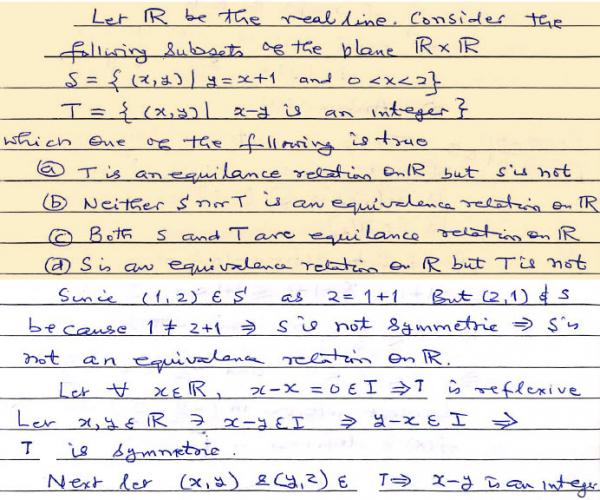 Let ℝ be the real line. Consider the
following subsets of the plane ℝ×ℝ
S = { (x,y) | y=x+1 and 0<x<2}
T = { (x,y) | x-y is an integer}
which one of the following is true
(a) T is an equilance relation on ℝ but S is not
(b) Neither S nor T is an equivalence relation on ℝ
(c) Both S and T are equilance relation on ℝ
(d) S is an equivalence relation on ℝ but T is not
Since (1,2) ∈ S as 2=1+1 But (2,1) ∉ S
because 1 ≠ 2+1 ⇒ S is not symmetric ⇒ S is
not an equivalence relation on ℝ.
Let ∀ x∈ℝ, x-x = 0 ∈ I ⇒ T is reflexive
Let x,y ∈ ℝ ∋ x-y ∈ I ⇒ y-x ∈ I ⇒
T is symmetric.
Next let (x,y) & (y,z) ∈ T ⇒ x-y is an integer